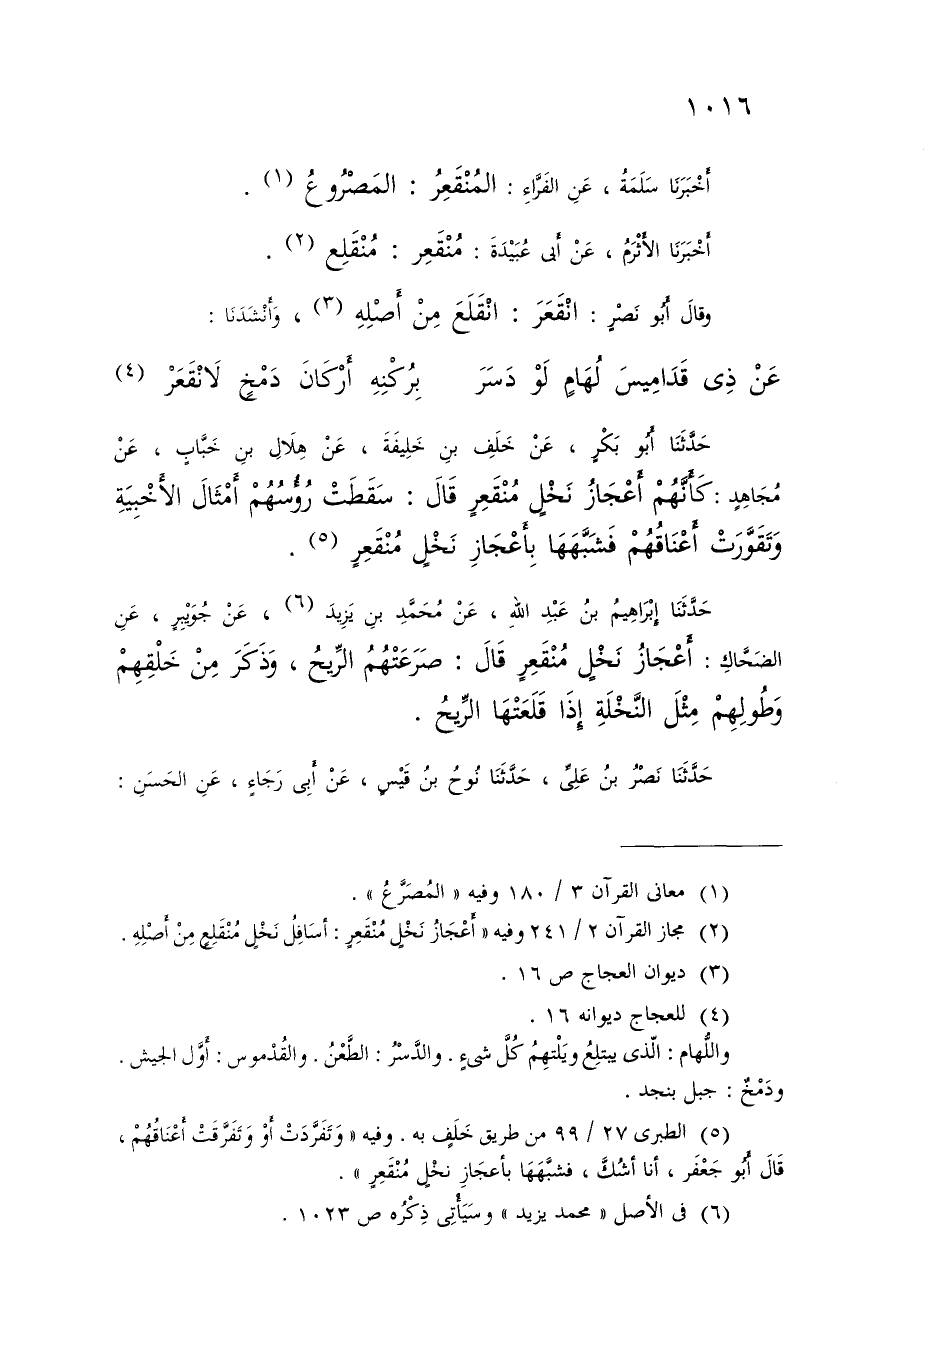 ١٠١٦
أَخْبَرَنَا سَلَمَةُ ، عَنِ الفَرَّاءِ : المُنْقَعِرُ : المَصْرُوعُ (١) .
أَخْبَرَنَا الأَثْرَمُ ، عَنْ أَبِى عُبَيْدَةَ : مُنْقَعِر : مُنْقَلِع (٢) .
وقالَ أَبُو نَصْرٍ : انْقَعَرَ : انْقَلَعَ مِنْ أَصْلِهِ (٣) ، وَأَنْشَدَنَا :
عَنْ ذِى قَدَامِيسَ لُهَامٍ لَوْ دَسَرَ بِرُكْنِهِ أَرْكَانَ دَمْخٍ لَانْقَعَرْ (٤)
حَدَّثَنَا أَبُو بَكْرٍ ، عَنْ خَلَفِ بنِ خَلِيفَةَ ، عَنْ هِلَالِ بنِ خَبَّابٍ ، عَنْ
مُجَاهِدٍ : كَأَنَّهُمْ أَعْجَازُ نَخْلٍ مُنْقَعِرٍ قَالَ : سَقَطَتْ رُؤُسُهُمْ أَمْثَالَ الأَخْبِيَةِ
وَتَقَوَّرَتْ أَعْنَاقُهُمْ فَشَبَّهَهَا بِأَعْجَازِ نَخْلٍ مُنْقَعِرٍ (٥) .
حَدَّثَنَا إِبْرَاهِيمُ بنُ عَبْدِ اللهِ ، عَنْ مُحَمَّدِ بنِ يَزِيدَ (٦) ، عَنْ جُوَيْبِرٍ ، عَنِ
الضَحَّاكِ : أَعْجَازُ نَخْلٍ مُنْقَعِرٍ قَالَ : صَرَعَتْهُمُ الرِّيحُ ، وَذَكَرَ مِنْ خَلْقِهِمْ
وَطُولِهِمْ مِثْلَ النَّخْلَةِ إِذَا قَلَعَتْهَا الرِّيحُ .
حَدَّثَنَا نَصْرُ بنُ عَلِىٍّ ، حَدَّثَنَا نُوحُ بنُ قَيْسٍ ، عَنْ أَبِى رَجَاءٍ ، عَنِ الحَسَنِ :
(١) معانى القرآن ٣ / ١٨٠ وفيه « المُصَرَّعُ » .
(٢) مجاز القرآن ٢ / ٢٤١ وفيه « أَعْجَازُ نَخْلٍ مُنْقَعِرٍ : أسَافِلُ نَخْلٍ مُنْقَلِعٍ مِنْ أَصْلِهِ .
(٣) ديوان العجاج ص ١٦ .
(٤) للعجاج ديوانه ١٦ .
واللُّهام : الّذى يبتلِعُ ويَلْتهِمُ كُلَّ شىءٍ . والدَّسْرُ : الطَّعْنُ . والقُدْموس : أَوَّل الجيش .
ودَمْخٌ : جبل بنجد .
(٥) الطبرى ٢٧ / ٩٩ من طريق خَلَفٍ به . وفيه « وَتَفَرَّدَتْ أَوْ وَتَفَرَّقَتْ أَعْنَاقُهُمْ ،
قَالَ أَبُو جَعْفَر ، أنا أشُكَّ ، فشبَّهَهَا بأعجَازِ نخْلٍ مُنْقَعِرٍ » .
(٦) فى الأصل « محمد يزيد » وسَيَأْتِى ذِكْرُه ص ١٠٢٣ .